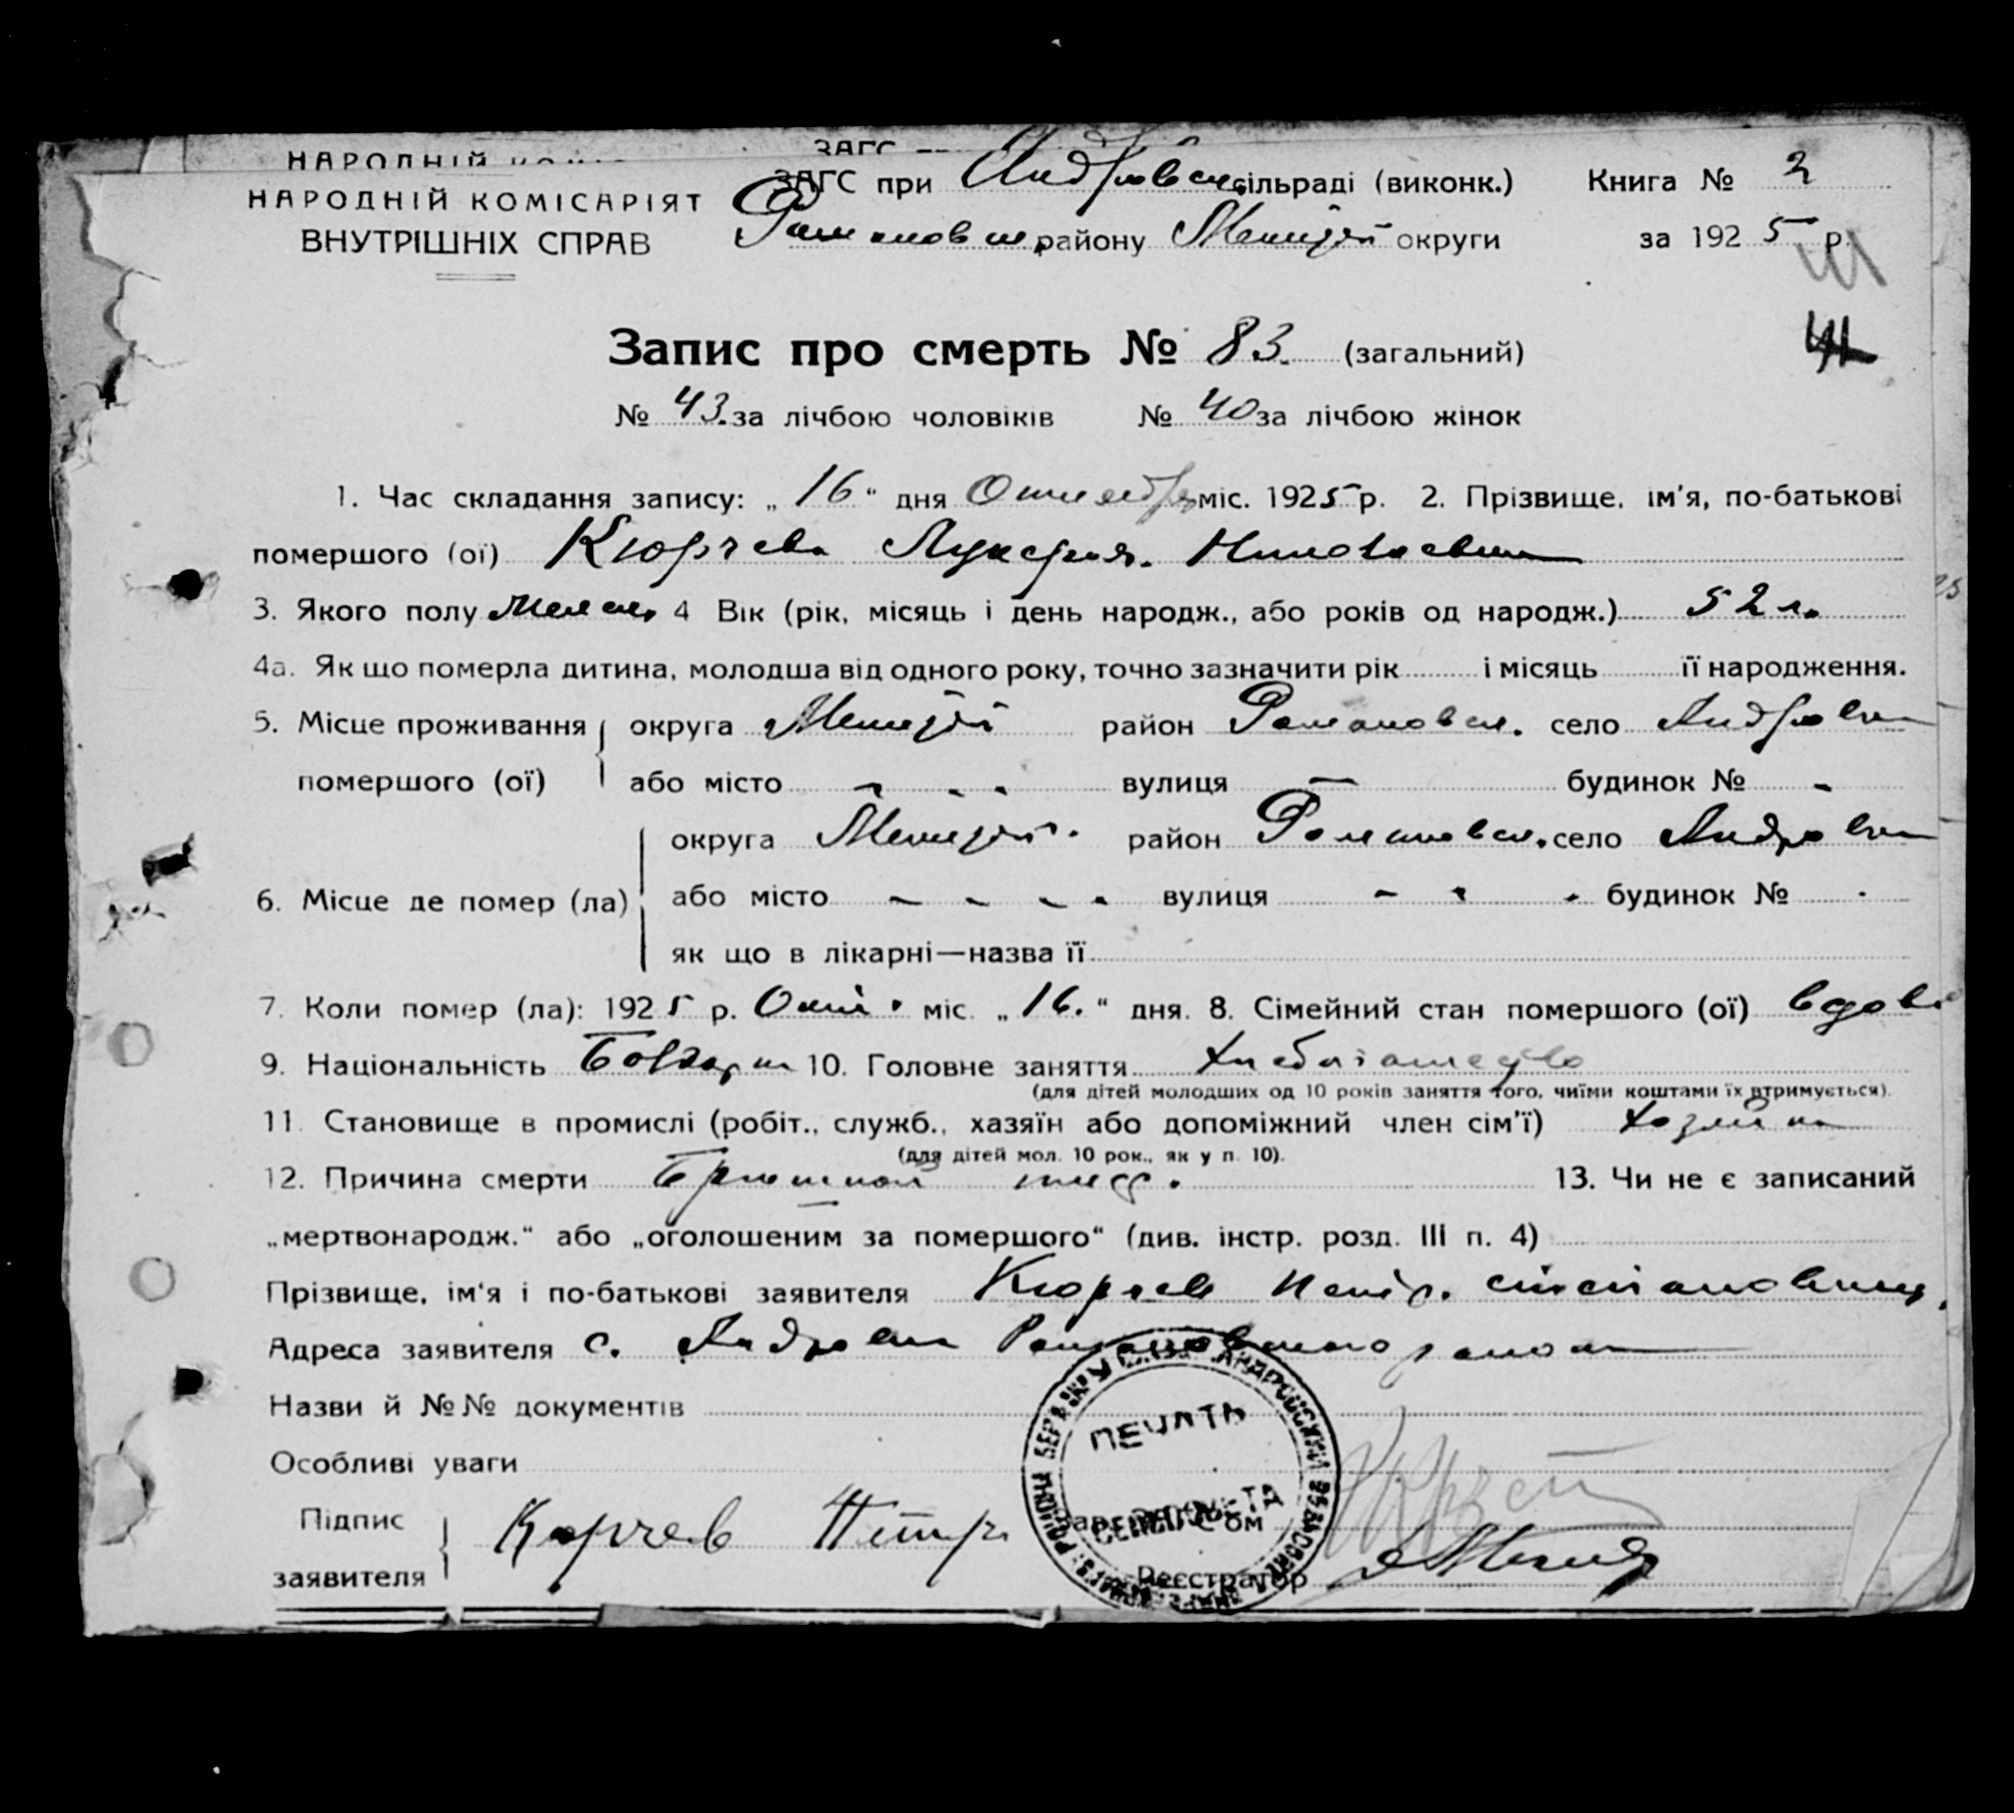 НАРОДНІЙ
ЗАГС
НАРОДНІЙ КОМІСАРІЯТ
ВНУТРІШНІХ СПРАВ
ЗАГС при Андровск. сільраді (виконк.) Книга № 2
Романовск. району округи за 1925 р.
Запис про смерть № 83. (загальний)
№ 43. за лічбою чоловіків № 40 за лічбою жінок
1. Час складання запису: „16“ дня Октября міс. 1925 р. 2. Прізвище, ім'я, по-батькові
помершого (ої) Кюрчева Лукерия. Николаевна
3. Якого полу 4 Вік (рік, місяць і день народж., або років од народж.) 52 л.
4а. Як що померла дитина, молодша від одного року, точно зазначити рік і місяць її народження.
5. Місце проживання округа район Романовск. село Андровка
помершого (ої) або місто - - - вулиця - будинок № -
6. Місце де помер (ла) округа район Романовск. село Андровка
або місто - - - - вулиця - - - будинок № -
як що в лікарні—назва її
7. Коли помер (ла): 1925 р. Окт. міс. „16.“ дня. 8. Сімейний стан помершого (ої) вдова
9. Національність Болгарка 10. Головне заняття
(для дітей молодших од 10 років заняття того, чиїми коштами їх втримується).
11. Становище в промислі (робіт., служб., хазяїн або допоміжний член сім'ї) Хозяйка
(для дітей мол. 10 рок., як у п. 10).
12. Причина смерти Брюшной тиф. 13. Чи не є записаний
„мертвонародж.“ або „оголошеним за помершого“ (див. інстр. розд. III п. 4)
Прізвище, ім'я і по-батькові заявителя Кюрчев Петр. Степанович
Адреса заявителя с. Андровка Романовского района
Назви й №№ документів
Особливі уваги
ПЕЧАТЬ
Підпис заявителя Кюрчев Петр
Реєстратор